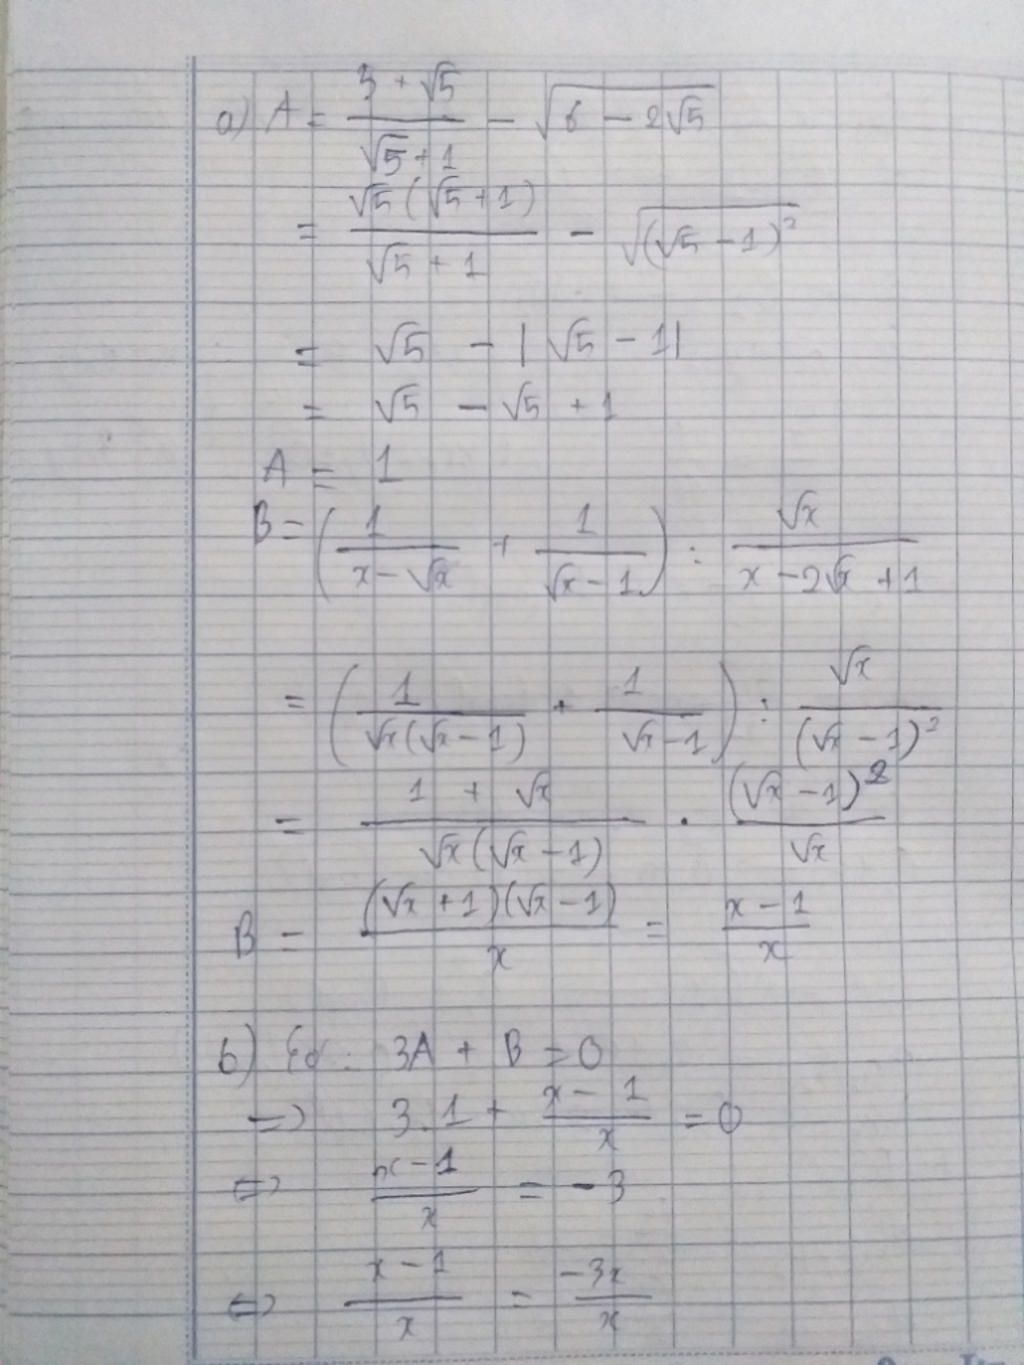 a) A = (3 + √5)/(√5 + 1) - √(6 - 2√5)
= (√5(√5 + 1))/(√5 + 1) - √((√5 - 1)²)
= √5 - |√5 - 1|
= √5 - √5 + 1
A = 1
B = (1/(x - √x) + 1/(√x - 1)) : √x/(x - 2√x + 1)
= (1/(√x(√x - 1)) + 1/(√x - 1)) : √x/(√x - 1)²
= (1 + √x)/(√x(√x - 1)) . (√x - 1)²/√x
B = ((√x + 1)(√x - 1))/x = (x - 1)/x
b) : 3A + B = 0
=> 3.1 + (x - 1)/x = 0
<=> (x - 1)/x = -3
<=> (x - 1)/x = -3x/x